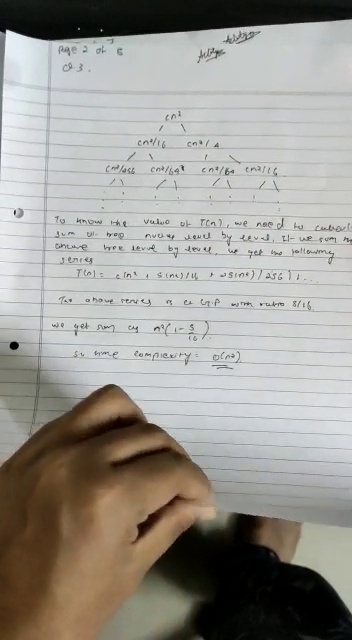 Page 2 of 8
Q 3.
cn²
cn²/16 cn²/4
cn²/256 cn²/64 cn²/64 cn²/16
To know the value of T(n), we need to
sum of tree nodes level by level. If we sum
above tree level by level, we get the following
series
T(n) = c(n² + 5(n²)/16 + 25(n²)/256) + ...
The above series is a G.P with ratio 5/16.
we get sum as n²(1 - 5/16)
so time complexity = O(n²)